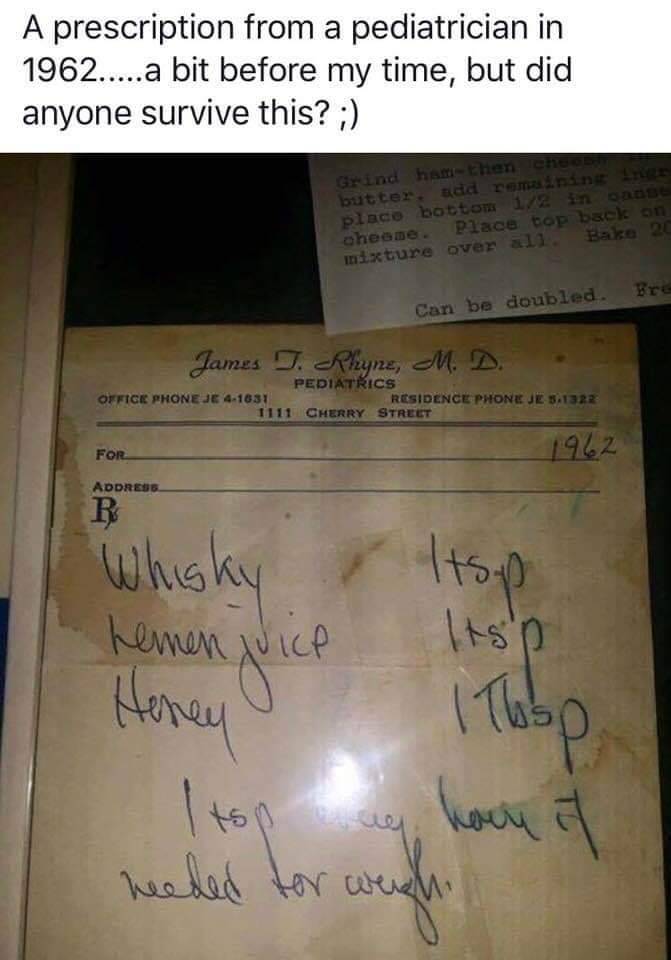 A prescription from a pediatrician in
1962.....a bit before my time, but did
anyone survive this? ;)
Grind ham-then cheese
butter, add remaining
place bottom 1/2 in
cheese. Place top back on
mixture over all. Bake
Can be doubled.
James T. Rhyne, M. D.
PEDIATRICS
OFFICE PHONE JE 4-1631 RESIDENCE PHONE JE 5-1322
1111 CHERRY STREET
FOR 1962
ADDRESS
Rx
Whisky 1 tsp
Lemon juice 1 tsp
Honey 1 Tbsp
1 tsp every hour if
needed for cough.